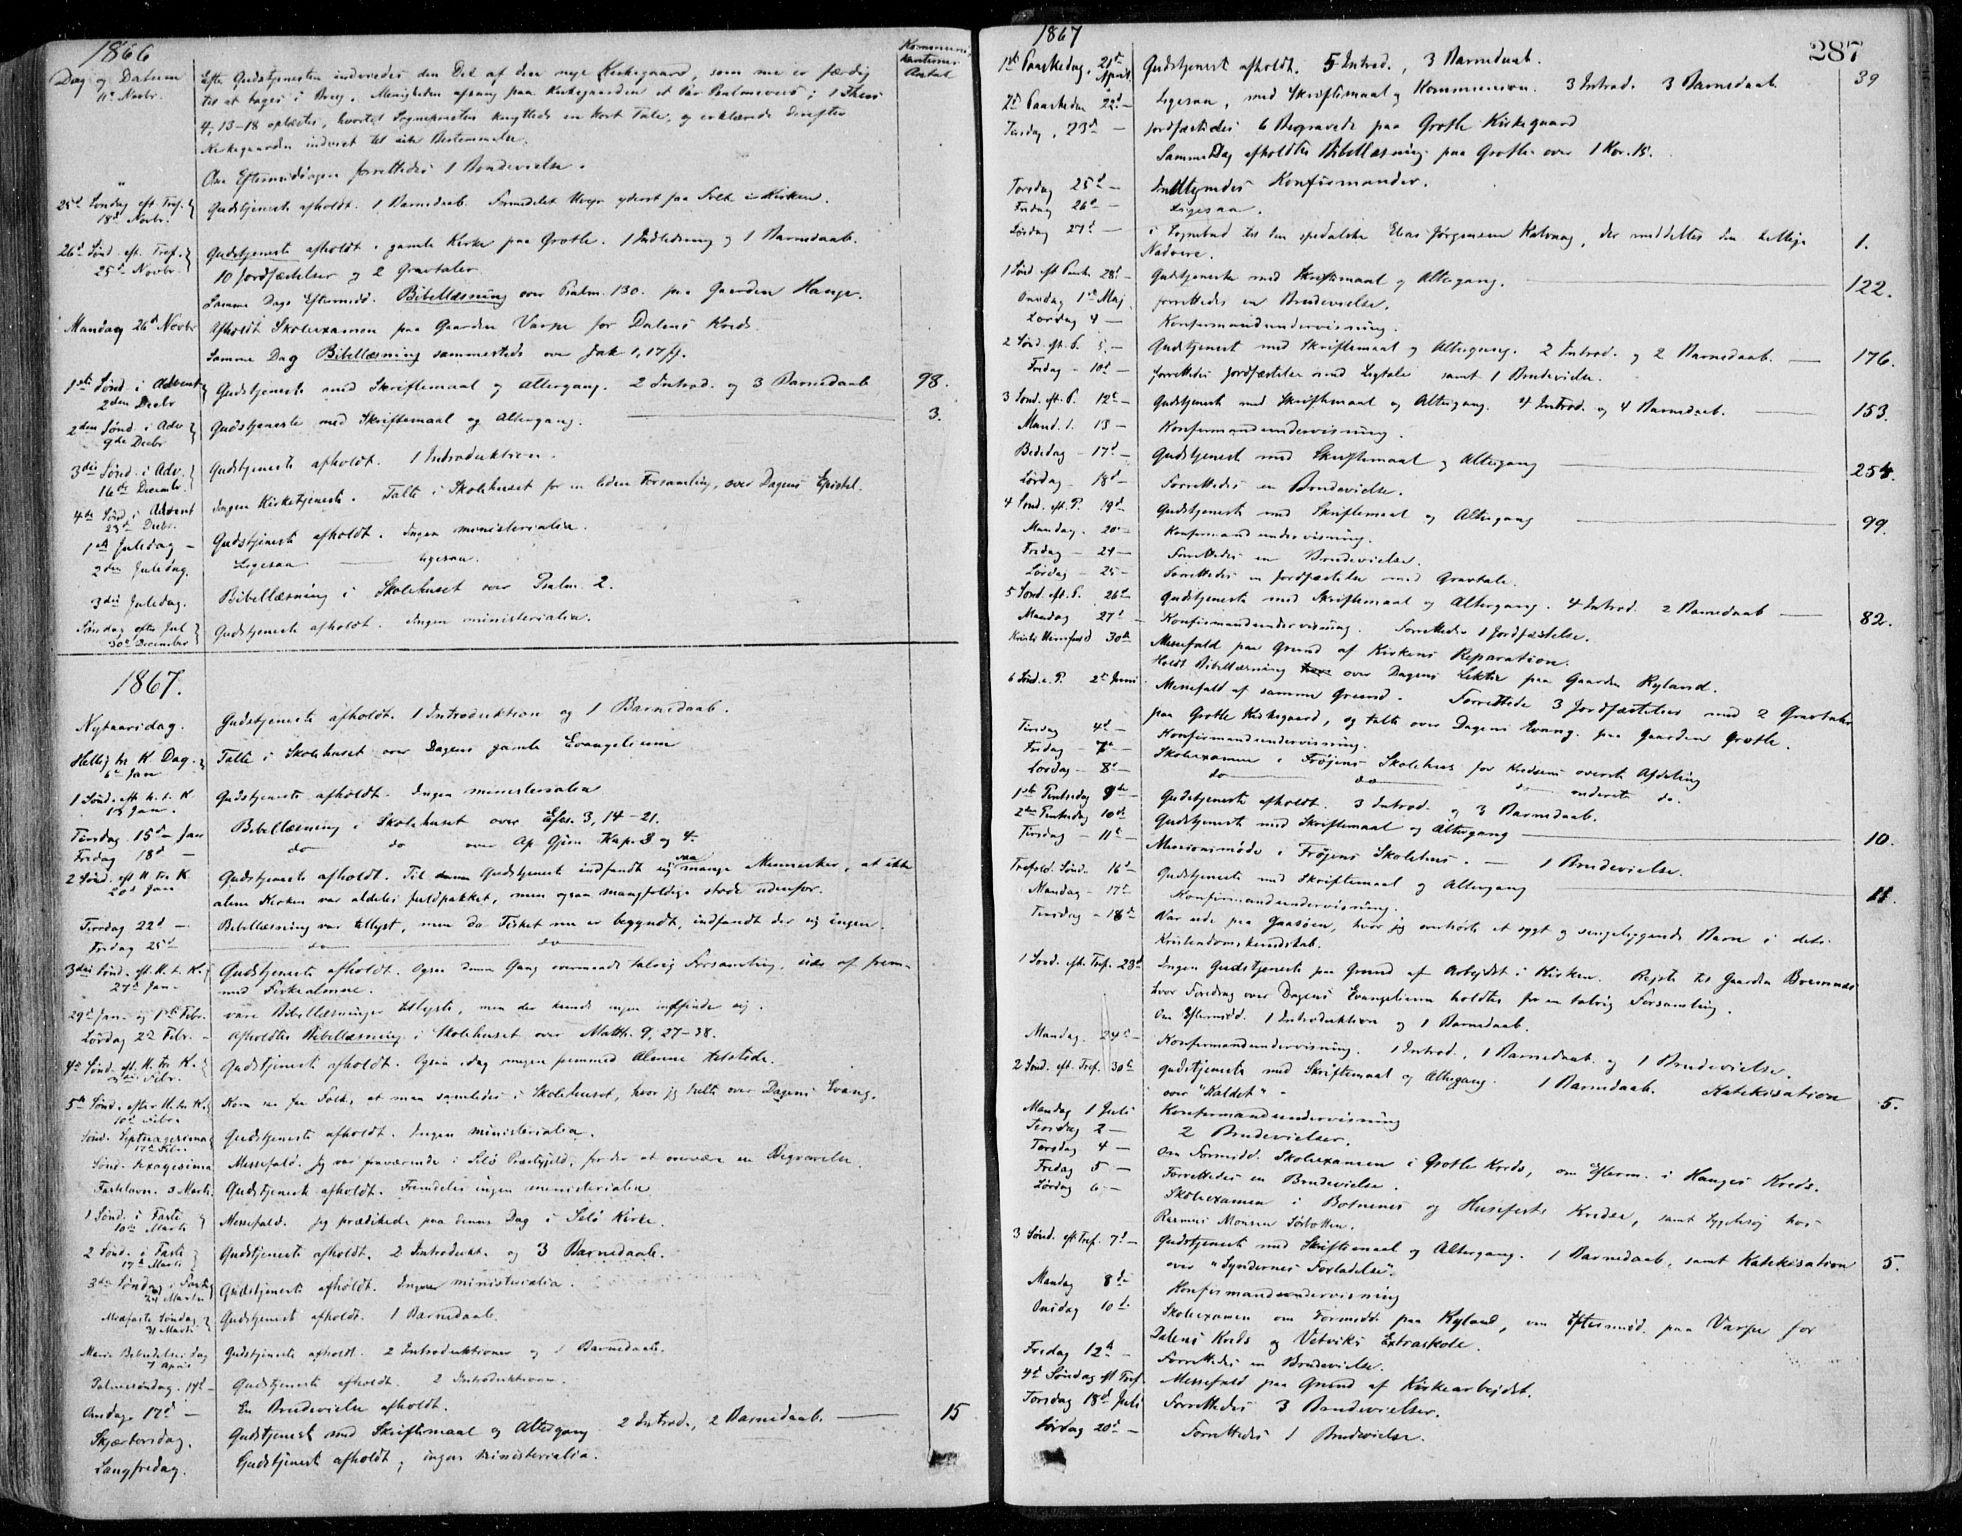 1866
Dag og Datum
Kommuni-
kanternes
Antal
11te Novbr.
Efter Gudstjenesten indviedes den Del af den nye Kirkegaard, som nu er færdig
til at tages i Brug. Menigheden afsang paa Kirkegaarden et Par Psalmevers; 1 Thess
4, 13-18 oplæstes, hvortil Sognepresten knyttede en kort Tale, og erklærede derefter
Kirkegaarden indviet til sin Bestemmelse.
Om Eftermiddagen forrettedes 1 Brudevielse.
25de Søndag eft. Tref. 18de Novbr. Gudstjeneste afholdt. 1 Barnedaab. Formedelst Uveir yderst faa Folk i Kirken.
26de Sønd. eft. Tref. 25de Novbr. Gudstjeneste afholdt i gamle Kirke paa Grotle. 1 Indledning og 1 Barnedaab.
10 Jordfæstelser og 2 Gravtaler
Samme Dags Eftermidd. Bibellæsning over Psalm. 130. paa Gaarden Hauge.
Mandag 26de Novbr Afholdt Skoleexamen paa Gaarden Varpe for Dalens Kreds.
Samme Dag Bibellæsning sammesteds over Jak 1, 17 ff.
1ste Sønd. i Advent 2den Decbr Gudstjeneste med Skriftemaal og Altergang. 2 Introd. og 3 Barnedaab 98.
2den Sønd. i Adv. 9de Decbr Gudstjeneste med Skriftemaal og Altergang. 3.
3die Sønd. i Adv. 16de Decembr. Gudstjeneste afholdt. 1 Introduktion.
4de Sønd. i Advent 23de Decbr. Ingen Kirketjeneste. Talte i Skolehuset for en liden Forsamling, over Dagens Epistel.
1ste Juledag - Gudstjeneste afholdt. Ingen ministerialia.
2den Juledag. Ligesaa ligesaa.
3die Juledag. Bibellæsning i Skolehuset over Psalm. 2.
Søndag efter Jul 30te December Gudstjeneste afholdt. Ingen ministerialia.
1867.
Nytaarsdag. Gudstjeneste afholdt. 1 Introduktion og 1 Barnedaab.
Hellig tre K. Dag. 6te Jan Talte i Skolehuset over Dagens gamle Evangelium
1 Sønd. eft. h. t. K. 13 Jan. Gudstjeneste afholdt. Ingen ministerialia
Tirsdag 15de Jan Bibellæsning i Skolehuset over Efes. 3, 14-21.
Fredag 18de - do do over Ap Gjern Kap. 3 og 4.
2 Sønd. eft H. tre K 20de Jan Gudstjeneste afholdt. Til Gudstjeneste indfandt sig saa mange Mennesker, at ikke
alene Kirken var aldeles fuldpakket, men ogsaa mangfoldige stode udenfor.
Tirsdag 22de - Bibellæsning var tillyst, men da Fisket nu er begyndt, indfandt der sig ingen.
Fredag 25de do do
3die Sønd. eft. H. t. K. 27de Jan. Gudstjeneste afholdt. Ogsaa denne Gang overmaade talrig Forsamling, især af frem-
med Fiskealmue.
29de Jan. og 1ste Febr. vare Bibellæsninger tillyste, men der kunde ingen indfinde sig.
Lørdag 2den Febr. - Afholdtes Bibellæsning i Skolehuset over Matth. 9, 27-38.
4de Sønd. eft. H. tre K. 3die Febr. Gudstjeneste afholdt. Ogsaa idag megen fremmed Almue tilstede.
5te Sønd. efter H. tre K. 10de Febr. Kom saa faa Folk, at man samledes i Skolehuset, hvor jeg talte over Dagens Evang.
Sønd. Septuagesima 17de Febr. Gudstjeneste afholdt. Ingen ministerialia.
Sønd. Sexagesima Messefald. Jeg var fraværende i Selø Præstegjeld, for der at overvære en Begravelse.
Fastelavn. 3 Marts. Gudstjeneste afholdt. Fremdeles ingen ministerialia
1 Sønd. i Faste 10de Marts Messefald. Jeg prædikede paa denne Dag i Selø Kirke.
2 Sønd. i Faste 17de Marts Gudstjeneste afholdt. 2 Introdukt. og 3 Barnedaab.
3die Søndag i Faste 24 Marts Gudstjeneste afholdt. Ingen ministerialia.
Midfaste Søndag 31 Marts Gudstjeneste afholdt. 1 Barnedaab.
Mariæ Bebudelses dag 7 April Gudstjeneste afholdt. 2 Introduktioner og 1 Barnedaab.
Palmesøndag. 14de - Gudstjeneste afholdt. 2 Introduktioner.
Onsdag. 17de - En Brudevielse afholdt.
Skjærtorsdag. Gudstjeneste med Skriftemaal og Altergang 2 Introd., 2 Barnedaab. 15
Langfredag. Gudstjeneste afholdt, ingen Ministerialia.
1867
287
1ste Paaskedag, 21de April. Gudstjeneste afholdt. 5 Introd., 3 Barnedaab.
2den Paaskedag 22de - Ligesaa, med Skriftemaal og Kommunion. 3 Introd. 3 Barnedaab. 39
Tirsdag, 23de - Jordfæstedes 6 Begravede paa Grotle Kirkegaard
Samme Dag afholdtes Bibellæsning paa Grotle over 1 Kor. 15.
Torsdag 25de - Indtegnedes Konfirmander.
Fredag 26de - Ligesaa.
Lørdag 27de - i Sognebud til den spedalske Elias Jørgensen Kalvaag, der meddeltes den hellige 1.
Nadvere.
1 Sønd. eft Paaske 28de - Gudstjeneste med Skriftemaal og Altergang. 122.
Onsdag 1ste Maj forrettedes en Brudevielse.
Lørdag 4 - Konfirmandundervisning.
2 Sønd. eft. P. 5. - Gudstjeneste med Skriftemaal og Altergang. 2 Introd. og 2 Barnedaab. 176.
Fredag - 10de - forrettedes Jordfæstelse med Ligtale samt 1 Brudevielse.
3 Sønd. eft. P. 12te - Gudstjeneste med Skriftemaal og Altergang. 4 Introd. og 4 Barnedaab. 153.
Mand. d. 13 - Konfirmandundervisning.
Bededag - 17de - Gudstjeneste med Skriftemaal og Altergang 254.
Lørdag - 18de - Forrettedes en Brudevielse.
4 Sønd. eft. P. 19de - Gudstjeneste med Skriftemaal og Altergang 99.
Mandag. 20 - Konfirmandundervisning.
Fredag - 24 - Forrettedes en Brudevielse.
Lørdag - 25 - Forrettedes en Jordfæstelse med Gravtale.
5 Sønd. eft. P. 26de - Gudstjeneste med Skriftemaal og Altergang. 4 Introd. 2 Barnedaab 82.
Mandag 27de - Konfirmandundervisning. Forrettedes 1 Jordfæstelse.
Kristi Himmelfart 30te Messefald paa Grund af Kirkens Reparation.
Holdt Bibellæsning over Dagens Lektie paa Gaarden Ryland.
6 Sønd. e. P. 2den Juni Messefald af samme Grund. Forrettede 3 Jordfæstelser med 2 Gravtaler
paa Grotle Kirkegaard, og talte over Dagens Evang. paa Gaarden Grotle.
Tirsdag 4de - Konfirmandundervisning.
Fredag - 7de - Skoleexamen i Frøjens Skolehus for Kredsens øverste Afdeling
Lørdag - 8de - do do do nederste do.
1ste Pintsedag 9de - Gudstjeneste afholdt. 3 Introd. og 3 Barnedaab.
2den Pintsedag 10de Gudstjeneste med Skriftemaal og Altergang 10.
Tirsdag - 11te - Missionsmøde i Frøjens Skolehus. - 1 Brudevielse.
Trefold. Sønd. 16de - Gudstjeneste med Skriftemaal og Altergang 11.
Mandag - 17de - Konfirmandundervisning.
Tirsdag - 18de - Var ude paa Gaasøen, hvor jeg overhørte et sygt og sengeliggende Barn i dets
Kristendomskundskab.
1 Sønd. eft. Tref. 23de Ingen Gudstjeneste paa Grund af Arbejdet i Kirken. Rejste til Gaarden Bremnes
hvor Foredrag over Dagens Evangelium holdtes for en talrig Forsamling.
Om Eftermidd. 1 Introduktion og 1 Barnedaab.
Mandag. 24de - Konfirmandundervisning. 1 Introd., 1 Barnedaab. og 1 Brudevielse.
2 Sønd. eft. Tref. 30te Gudstjeneste med Skriftemaal og Altergang. 1 Barnedaab. Katekisation 5.
over "Kaldet".
Mandag 1 Juli Konfirmandundervisning
Tirsdag 2 - 2 Brudevielser.
Torsdag 4 - Om Formidd. Skoleexamen i Grotle Kreds, om Efterm. i Hauges Kreds.
Fredag 5 - Forrettedes en Brudevielse.
Lørdag 6 - Skoleexamen i Botnenes og Husefests Kredse, samt Sygebesøg hos
Rasmus Monsen Sørbotten.
3 Sønd. eft Tref. 7de - Gudstjeneste med Skriftemaal og Altergang. 1 Barnedaab, samt Katekisation 5.
over "Syndernes Forladelse".
Mandag 8de Konfirmandundervisning
Onsdag 10de. Skoleexamen om Formidd. paa Ryland, om Eftermidd. paa Varpe for
Dalens Kreds og Vetviks Extraskole.
Fredag 12te - Forrettedes en Brudevielse.
4de Søndag eft Tref. Messefald paa Grund af Kirkearbejdet.
Torsdag 18de Juli Forrettedes 3 Brudevielser.
Lørdag 20de - Forrettedes 1 Brudevielse.